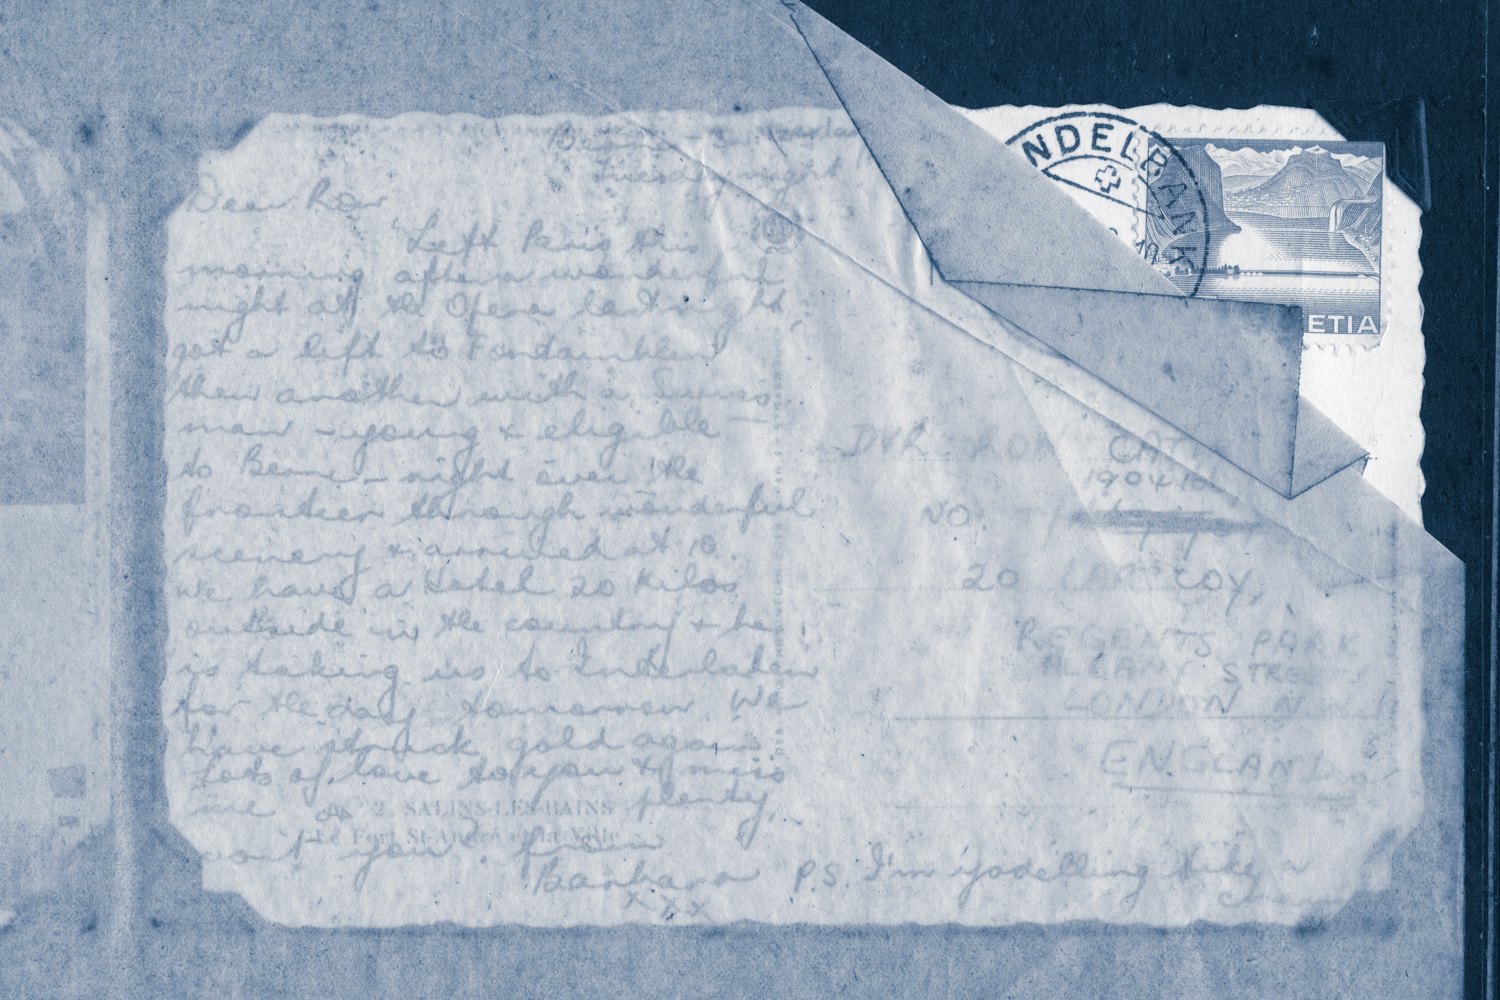 Bern - Switzerland
Tuesday night
Dear Ron
Left Paris this
morning after a wonderful
night at the Opera last night,
got a lift to Fontainbleau
then another with a Swiss
man - young & eligible -
to Bern - right over the
frontier through wonderful
scenery & arrived at 10.
We have a hotel 20 Kilos
outside in the country & he
is taking us to Interlaken
for the day tomorrow. We
have struck gold again
Lots of love to you & miss
me plenty,
won't you. from
Barbara
xxx
P.S. I'm yodelling like
2. SALINS-LES-BAINS
Le Fort St-André et la Ville
NDELBANK
10
ETIA
DVR. RON
19041
NO.
20
COY,
REGENTS PARK
ALBANY STREET
LONDON N.W.1
ENGLAND.